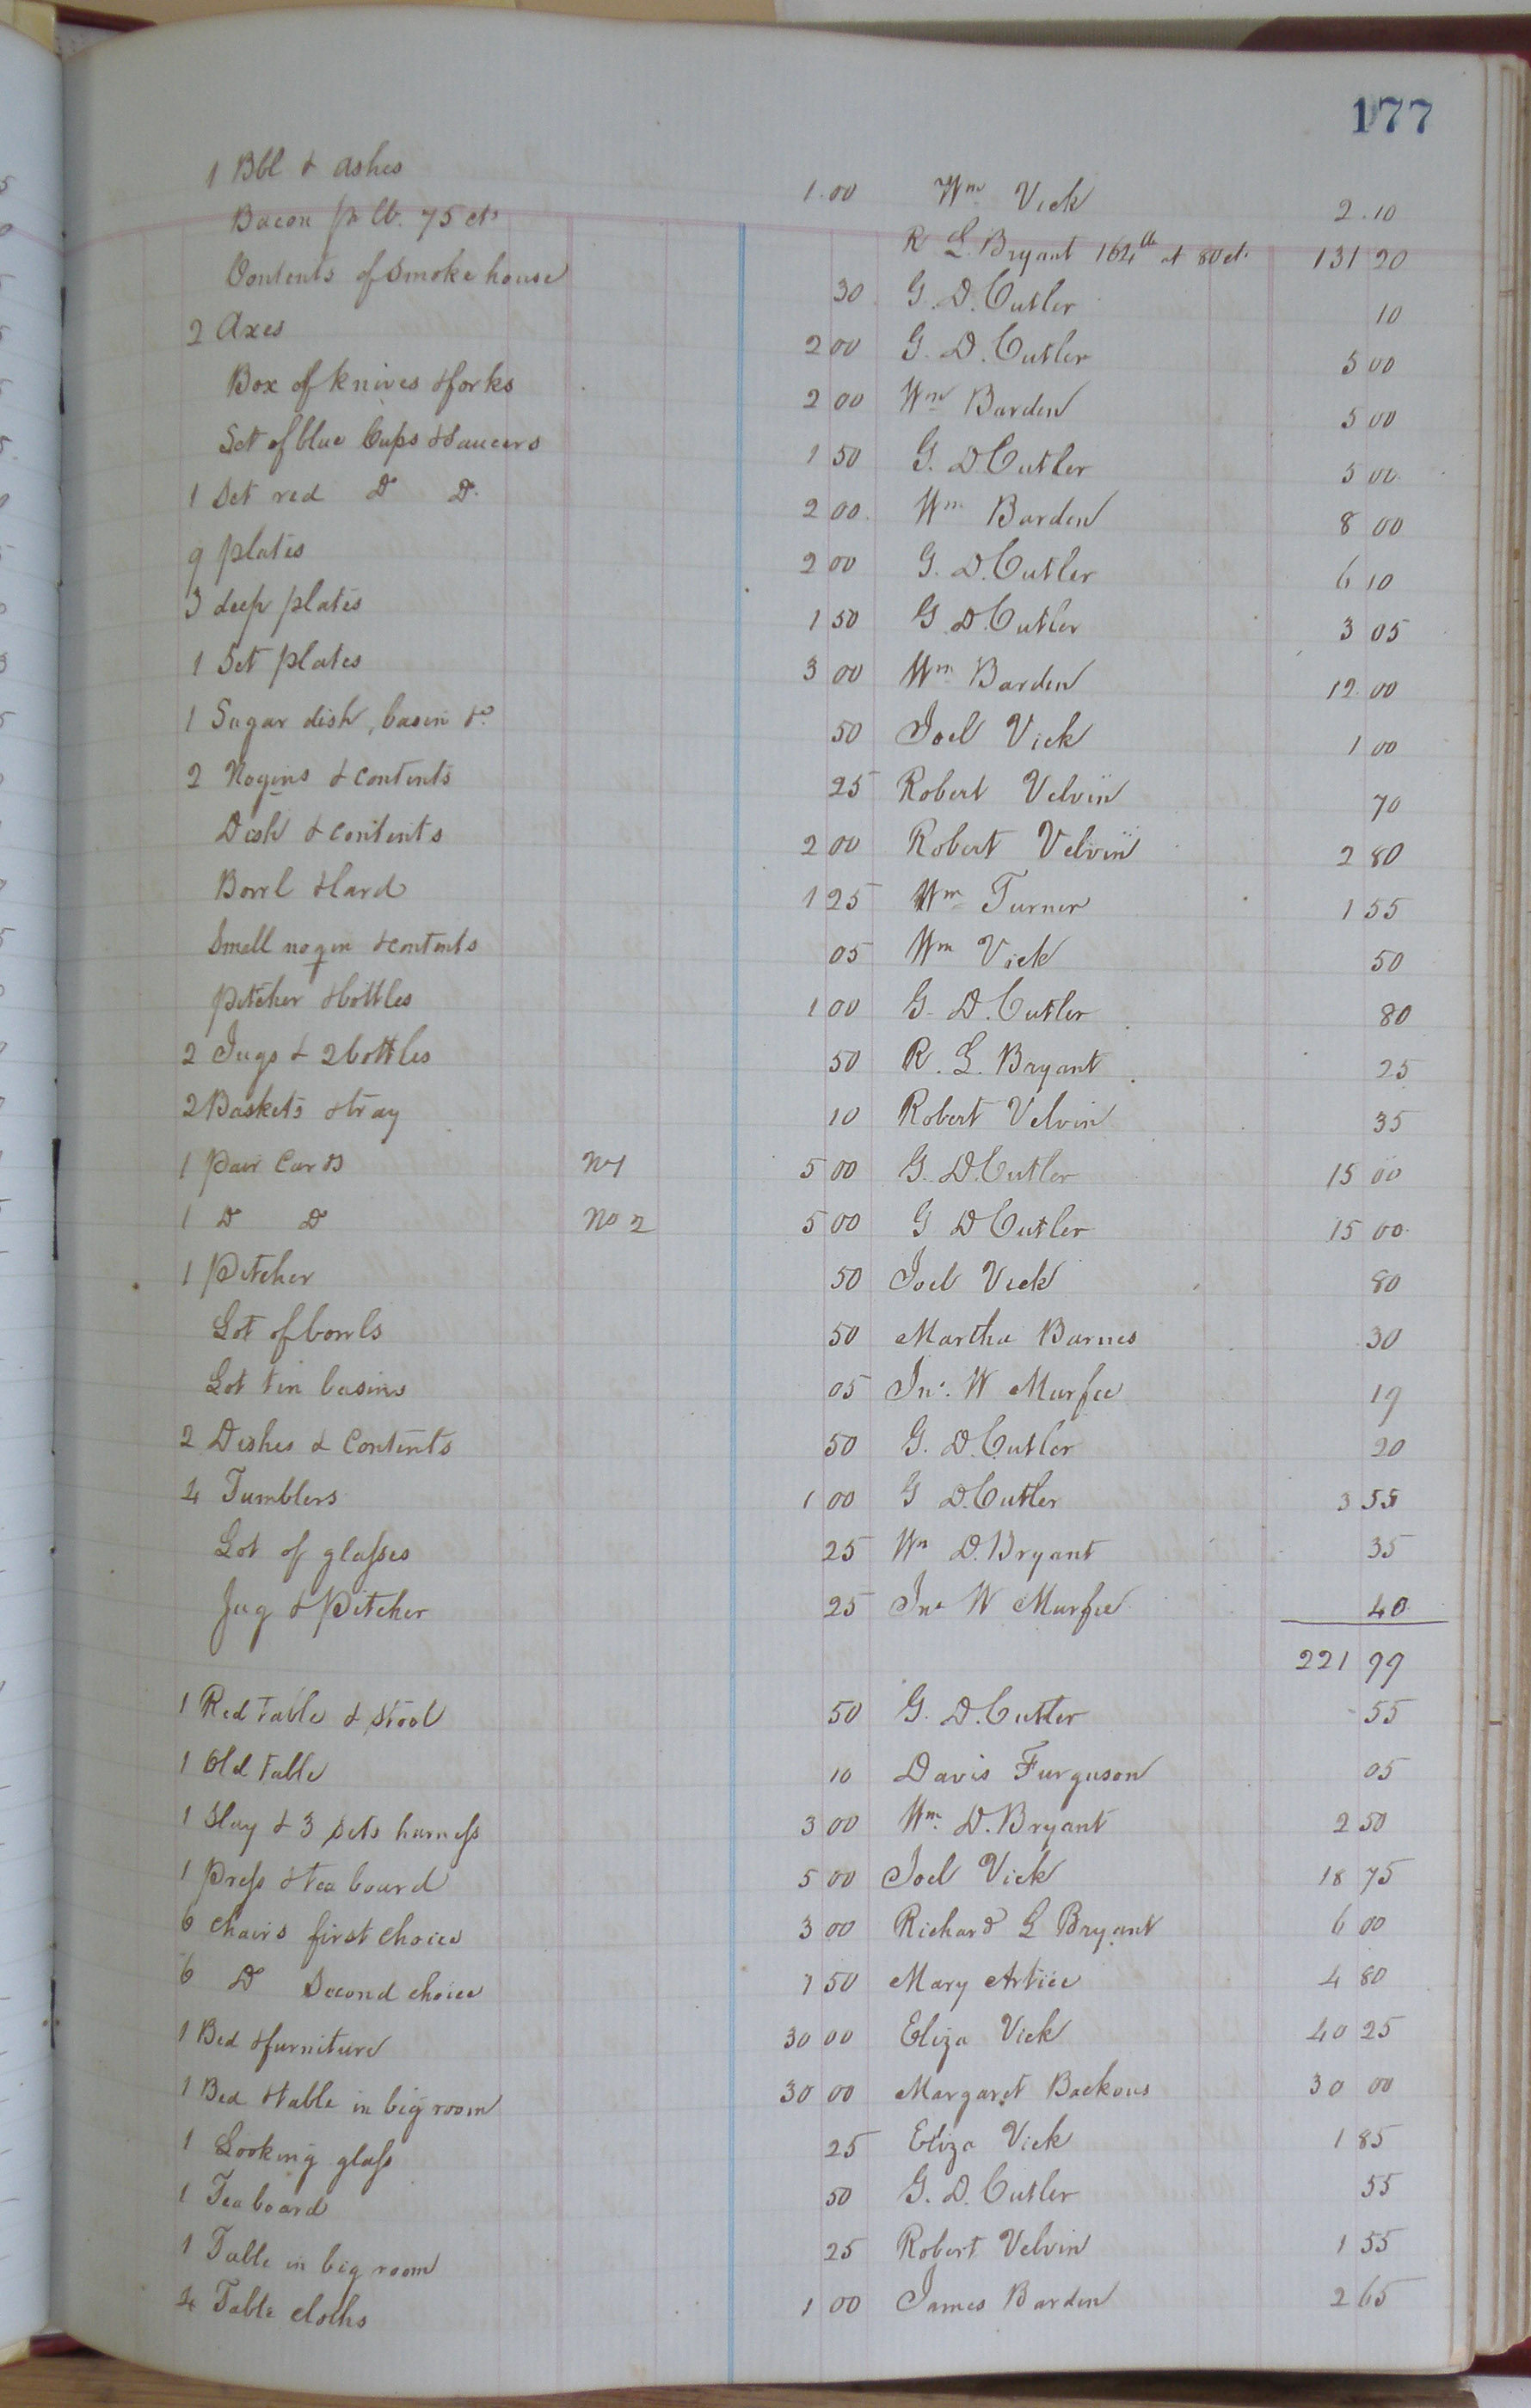 177
1 Bbl & ashes 1.00 Wm Vick 2.10
Bacon pr lb. 75 cts R L. Bryant 164 lb at 80 ct. 131 20
Contents of Smoke house 30 G. D. Cutler 10
2 Axes 2 00 G. D. Cutler 5 00
Box of knives & forks 2 00 Wm Barden 5 00
Set of blue Cups & Saucers 1 50 G. D Cutler 5 00
1 Set red Do Do. 2 00 Wm Barden 8 00
9 plates 2 00 G. D. Cutler 6 10
3 deep plates 1 50 G D. Cutler 3 05
1 Set plates 3 00 Wm Barden 12 00
1 Sugar dish, basin &c. 50 Joel Vick 1 00
2 Nogins & contents 25 Robert Velvin 70
Dish & contents 2 00 Robert Velvin 2 80
Bowl & lard 1 25 Wm Turner 1 55
Small nogin & contents 05 Wm Vick 50
Pitcher & bottles 1 00 G. D. Cutler 80
2 Jugs & 2 bottles 50 R. L. Bryant 25
2 Baskets & tray 10 Robert Velvin 35
1 Pair Cards No 1 5 00 G. D. Cutler 15 00
1 Do Do No 2 5 00 G D Cutler 15 00
1 Pitcher 50 Joel Vick 80
Lot of bowls 50 Martha Barnes 30
Lot tin basins 05 Jno. W Murfee 19
2 Dishes & Contents 50 G. D. Cutler 20
4 Tumblers 1 00 G D. Cutler 3 55
Lot of glasses 25 Wm D. Bryant 35
Jug & Pitcher 25 Jno W Murfee 40
221 99
1 Red table & stool 50 G. D. Cutler 55
1 Old table 10 Davis Furguson 05
1 Slay & 3 sets harness 3 00 Wm. D. Bryant 2 50
1 Press & tea board 5 00 Joel Vick 18 75
6 Chairs first choice 3 00 Richard L Bryant 6 00
6 Do Second choice 1 50 Mary Artice 4 80
1 Bed & furniture 30 00 Eliza Vick 40 25
1 Bed & table in big room 30 00 Margaret Backous 30 00
1 Looking glass 25 Eliza Vick 1 85
1 Tea board 50 G. D. Cutler 55
1 Table in big room 25 Robert Velvin 1 55
4 Table cloths 1 00 James Barden 2 65